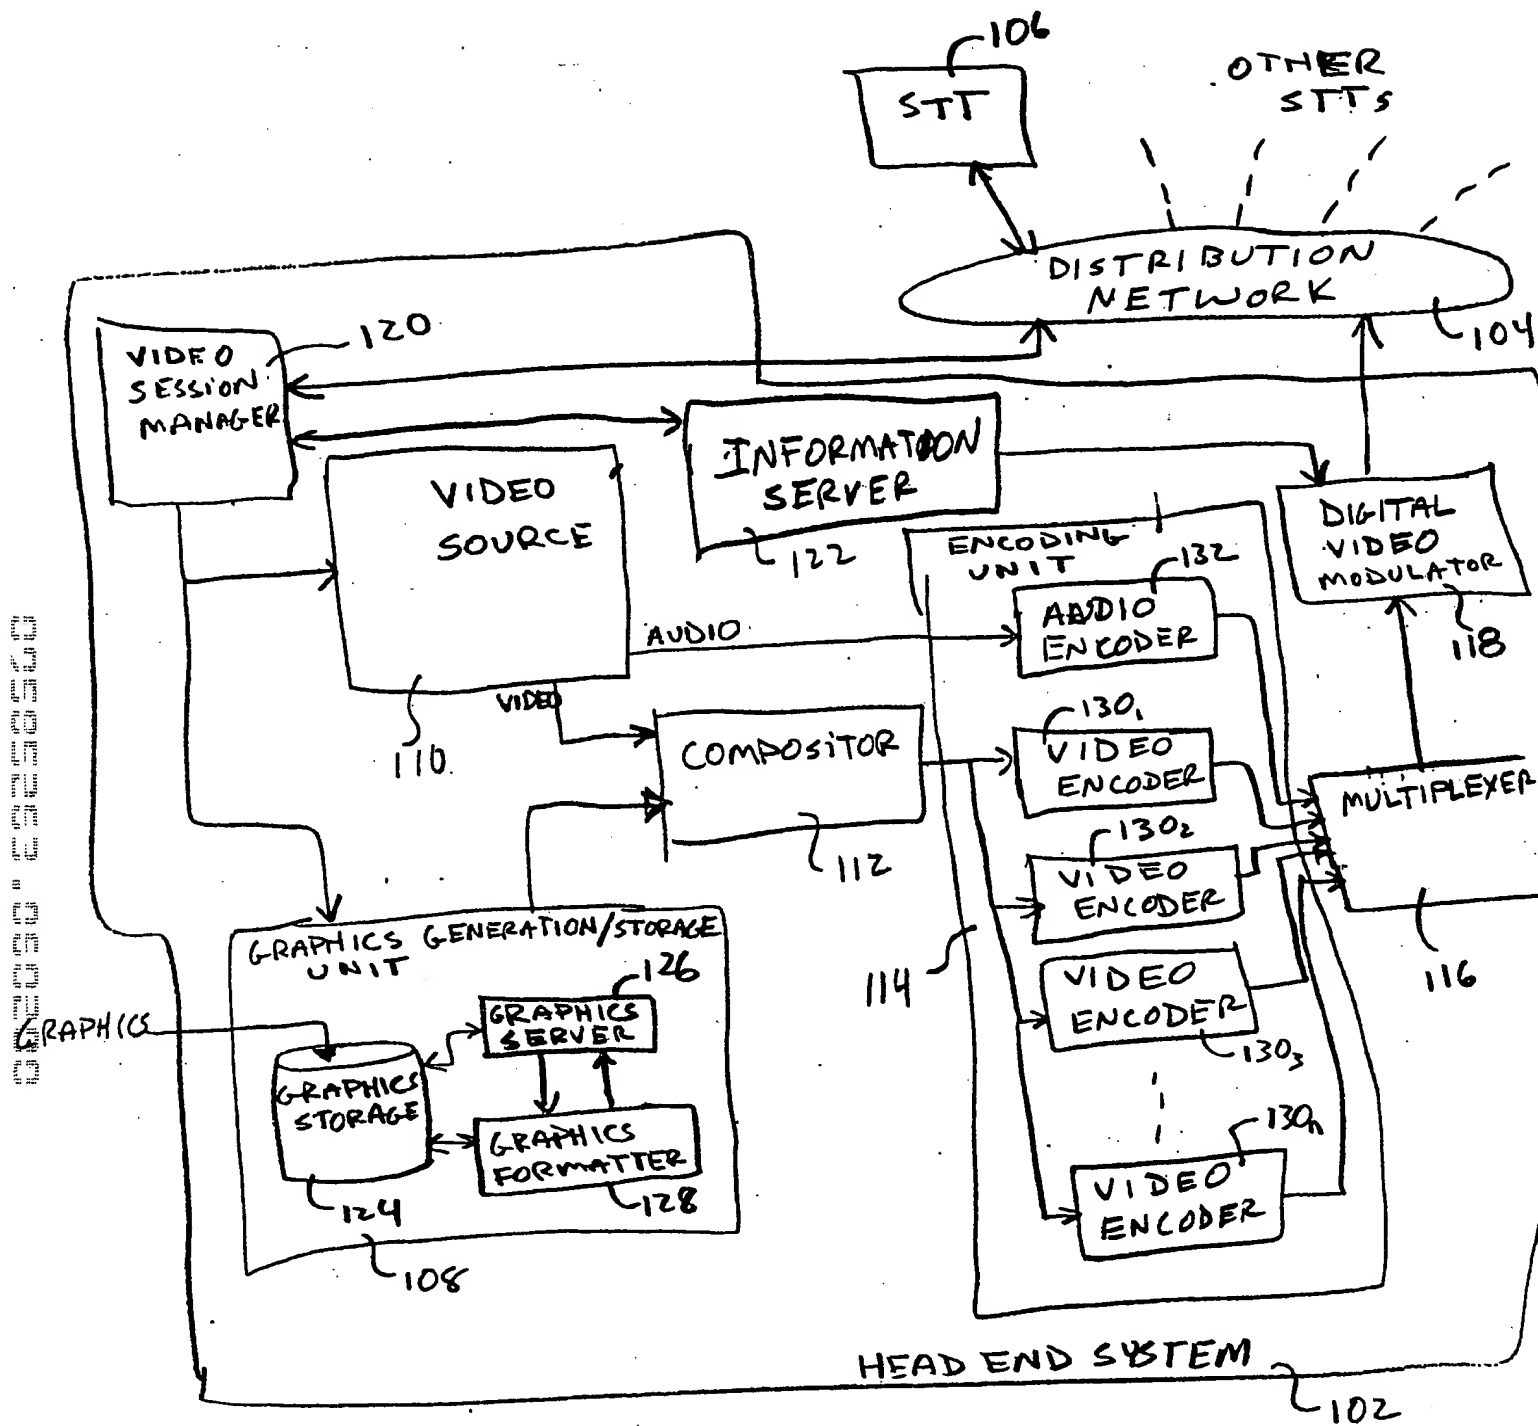 106
STT
OTHER
STTs
DISTRIBUTION
NETWORK
104
VIDEO
SESSION
MANAGER
120
INFORMATION
SERVER
122
VIDEO
SOURCE
110
AUDIO
VIDEO
ENCODING
UNIT
132
AUDIO
ENCODER
DIGITAL
VIDEO
MODULATOR
118
COMPOSITOR
112
130₁
VIDEO
ENCODER
130₂
VIDEO
ENCODER
VIDEO
ENCODER
130₃
130n
VIDEO
ENCODER
114
MULTIPLEXER
116
GRAPHICS GENERATION/STORAGE
UNIT
126
GRAPHICS
SERVER
GRAPHICS
GRAPHICS
STORAGE
124
GRAPHICS
FORMATTER
128
108
HEAD END SYSTEM
102